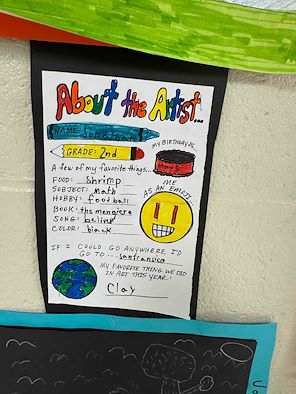 About the Artist...
NAME:
GRADE: 2nd
MY BIRTHDAY IS:
A few of my favorite things...
FOOD: Shrimp
SUBJECT: Math
HOBBY: football
BOOK: the mengiers
SONG: belive
COLOR: black
ME
AS AN EMOJI
IF I COULD GO ANYWHERE, I'D
GO TO... sanfransico
MY FAVORITE THING WE DID
IN ART THIS YEAR:
Clay